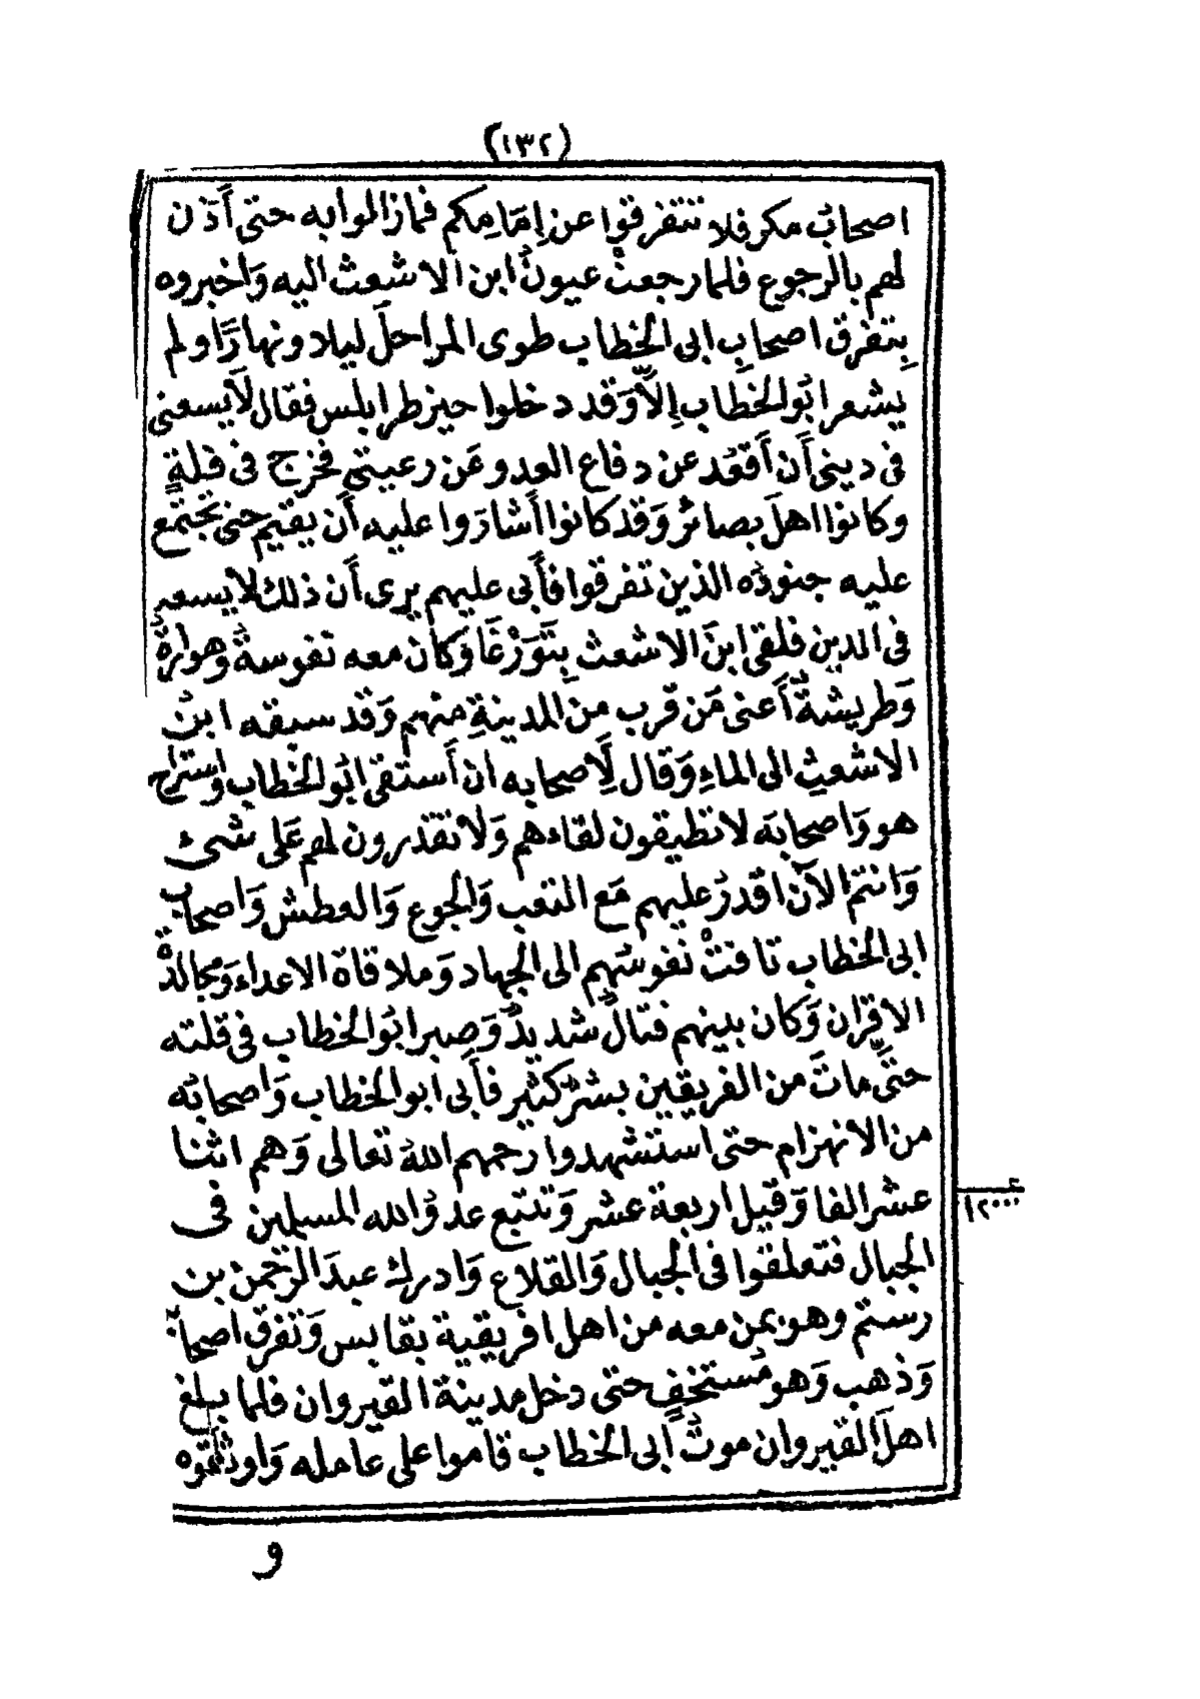 (١٣٢)
اصحابُ مكر فلا تتفرقوا عن إمَامِكم فمازالوا به حتى أَذن
لهم بالرجوع فلما رجعتْ عيونُ ابن الاشعث اليه وَاخبروه
بِتفرق اصحابِ ابى الخطاب طوى المراحلَ ليلا ونهارًا ولم
يشعر ابُو الخطاب إِلاَّ وَقد دخلوا حيز طرابلس فقال لَا يسعنى
فى دينى أَن أَقعُد عن دفاع العدو عَن رعيتى فخرج فى قلةٍ
وكانوا اهلَ بصائرُ وَقد كانوا أَشارَوا عليه أَن يقيم حتى تجتمع
عليه جنودُه الذين تفرقوا فأَبى عليهم يرى أَن ذلك لا يسعه
فى الدين فلقى ابنَ الاشعث بِتَوَرْغَا وَكان معه نفوسةُ وهوارةُ
وَطريشةُ أَعنى مَن قرب من المدينةِ منهم وَقد سبقه ابنُ
الاشعثِ الى الماءِ وَقال لِأَصحابه ان أَستقى ابُو الخطاب وَاستراح
هو وَاصحابَه لا تطيقون لقاءهم وَلا تقدرون لهم عَلى شئ
وَانتم الآن اقدرُ عليهم مَع التعب وَالجوع وَالعطش وَاصحاب
ابى الخطاب تاقتْ نفوسُهم الى الجهاد وَملاقاة الاعداء وَمجالدةُ
الاقِرَان وَكان بينهم قتالٌ شديدٌ وَصبر ابُو الخطاب فى قلته
حتَّى ماتَ من الفريقين بشرٌ كثير فأَبى ابو الخطاب وَاصحابُه
من الانهزام حتى استشهدوا رحمهم اللهُ تعالى وَهم اثنا
عشر الفا وَقيل اربعة عشر وَتتبع عدوُّ الله المسلمين فى
الجبال فتعلقوا فى الجبال وَالقلاع وَادرك عبدَ الرحمن بن
رستم وهو بمن معه من اهل افريقية بقابس وَتفرق اصحابُه
وَذهب وَهو مُستخفٍ حتى دخل مدينة القيروان فلما بلغ
اهلَ القيروان موتُ ابى الخطاب قاموا على عامله وَاوثقوه
ع
١٢٠٠٠
و